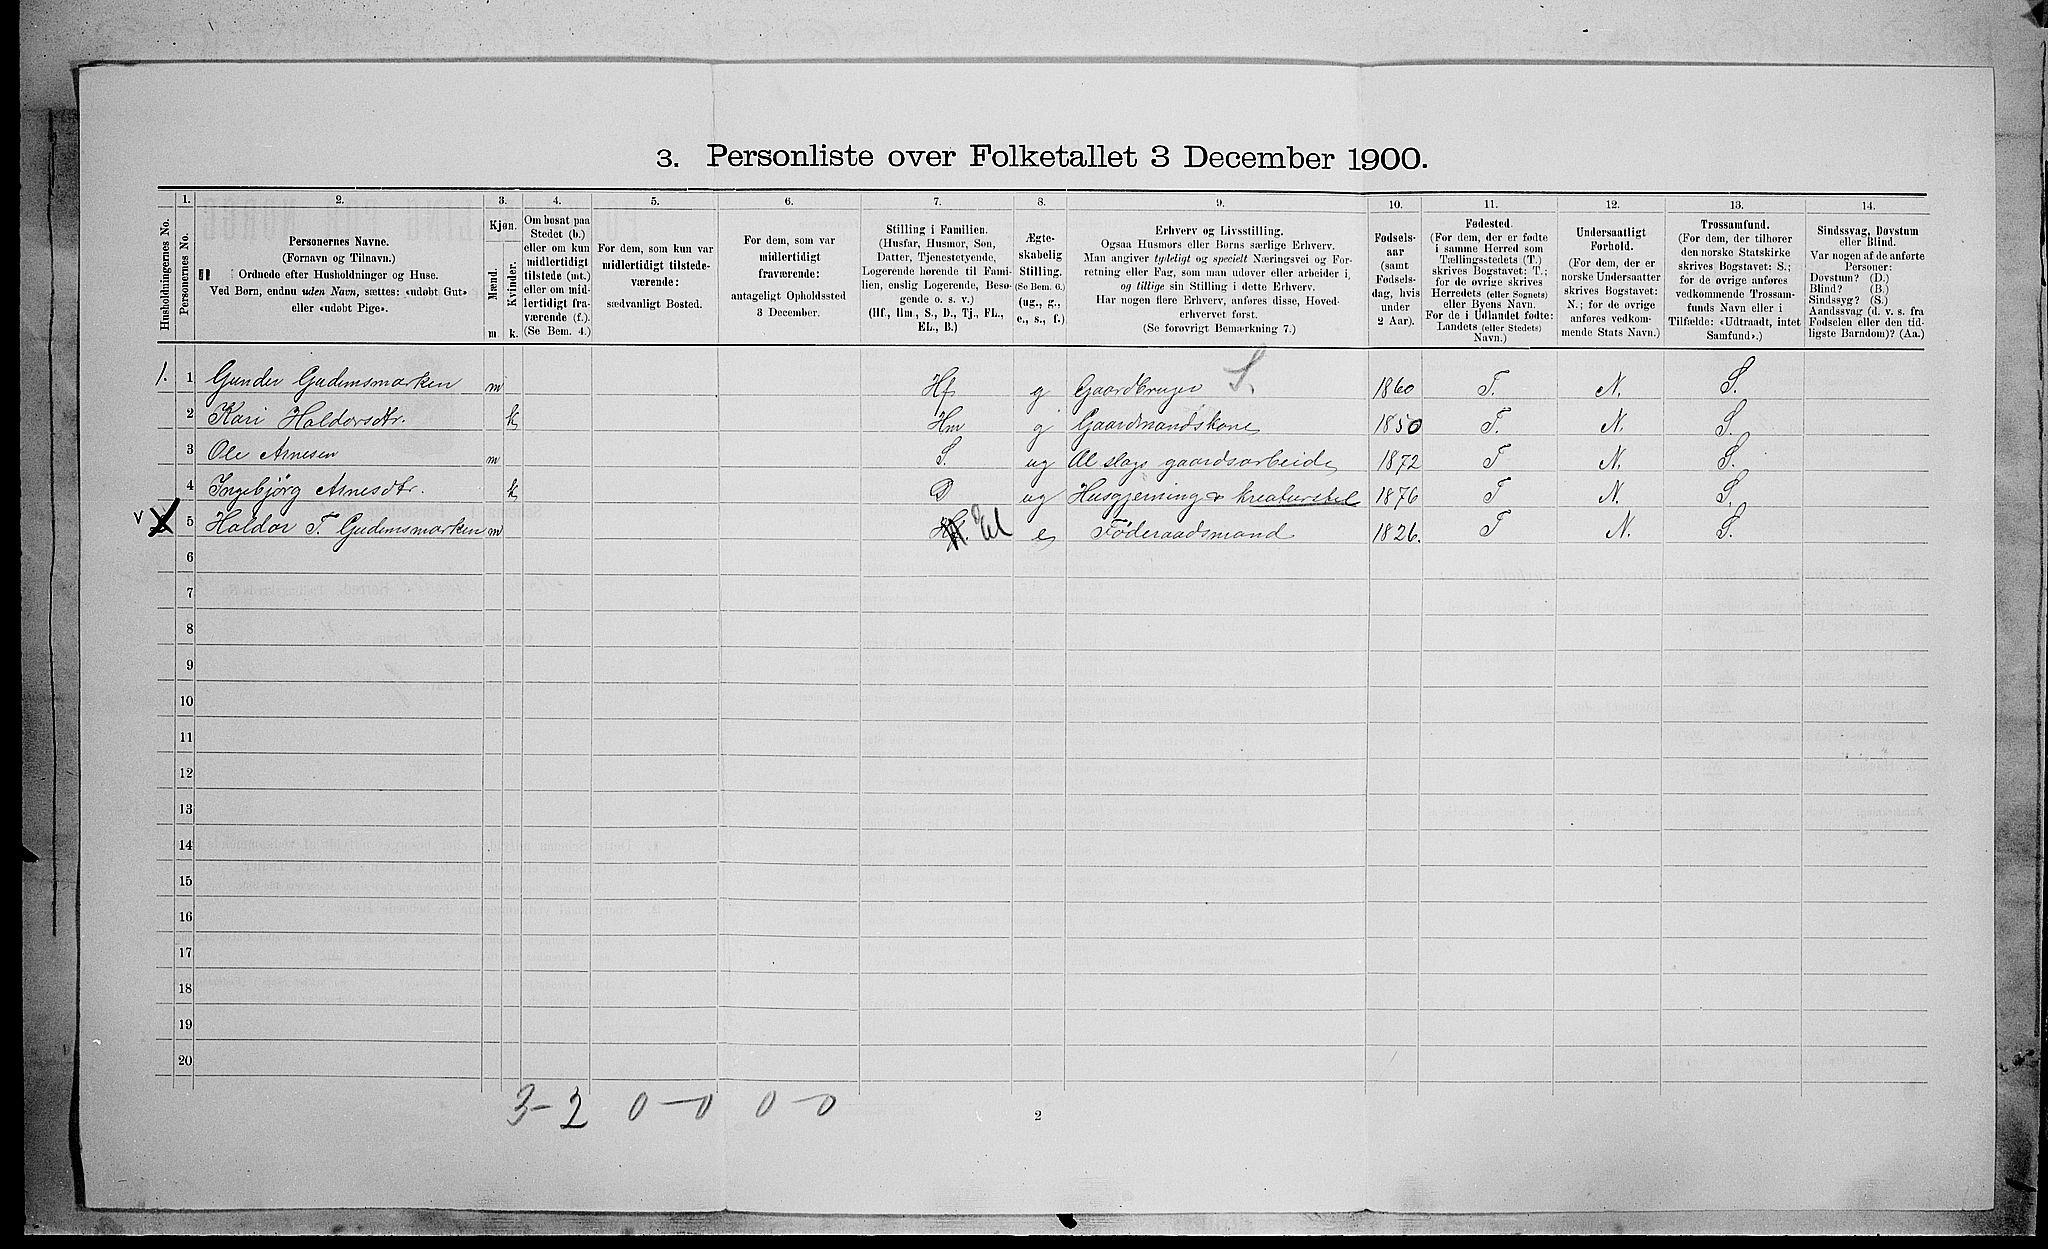 3. Personliste over Folketallet 3 December 1900.
1. 2. 3. 4. 5. 6. 7. 8. 9. 10. 11. 12. 13. 14.
Husholdningernes No.
Personernes No.
Personernes Navne.
(Fornavn og Tilnavn.)
Ordnede efter Husholdninger og Huse.
Ved Børn, endnu uden Navn, sættes: «udøbt Gut»
eller «udøbt Pige».
Kjøn.
Mænd.
Kvinder.
m. k.
Om bosat paa
Stedet (b.)
eller om kun
midlertidigt
tilstede (mt.)
eller om mid-
lertidigt fra-
værende (f.).
(Se Bem. 4.)
For dem, som kun var
midlertidigt tilstede-
værende:
sædvanligt Bosted.
For dem, som var
midlertidigt
fraværende:
antageligt Opholdssted
3 December.
Stilling i Familien.
(Husfar, Husmor, Søn,
Datter, Tjenestetyende,
Logerende hørende til Fami-
lien, enslig Logerende, Besø-
gende o. s. v.)
(Hf., Hm., S., D., Tj., FL.,
EL., B.)
Ægte-
skabelig
Stilling.
(Se Bem. 6.)
(ug., g.,
e., s., f.)
Erhverv og Livsstilling.
Ogsaa Husmors eller Børns særlige Erhverv.
Man angiver tydeligt og specielt Næringsvei og For-
retning eller Fag, som man udøver eller arbeider i,
og tillige sin Stilling i dette Erhverv.
Har nogen flere Erhverv, anføres disse, Hoved-
erhvervet først.
(Se forøvrigt Bemerkning 7.)
Fødsels-
aar
(samt
Fødsels-
dag, hvis
under
2 Aar).
Fødested.
(For dem, der er fødte
i samme Herred som
Tællingsstedets (T.)
skrives Bogstavet: T.;
for de øvrige skrives
Herredets (eller Sognets)
eller Byens Navn.
For de i Udlandet fødte:
Landets (eller Stedets)
Navn.)
Undersaatligt
Forhold.
(For dem, der er
norske Undersaatter
skrives Bogstavet:
N.; for de øvrige
anføres vedkom-
mende Stats Navn.)
Trossamfund.
(For dem, der tilhører
den norske Statskirke
skrives Bogstavet: S.;
for de øvrige anføres
vedkommende Trossam-
funds Navn eller i
Tilfælde: «Udtraadt, intet
Samfund».)
Sindssvag, Døvstum
eller Blind.
Var nogen af de anførte
Personer:
Døvstum? (D.)
Blind? (B.)
Sindssyg? (S.)
Aandssvag (d. v. s. fra
Fødselen eller den tid-
ligste Barndom)? (Aa.)
1. 1 Gunder Gudemsmarken m Hf g Gaardbruger S. 1860 T. N. S.
2 Kari Haldorsdtr. k Hm g Gaardmandskone 1850 T. N. S.
3 Ole Arnesen m S. ug Al slags gaardsarbeide 1872 T N. S.
4 Ingebjørg Arnesdtr. k D ug Husgjerning & kreaturstel 1876 T N. S.
v 5 Haldor T. Gudemsmarken m El e Føderaadsmand 1826. T N. S.
6
7
8
9
10
11
12
13
14
15
16
17
18
19
20
3-2 0-0 0-0
2